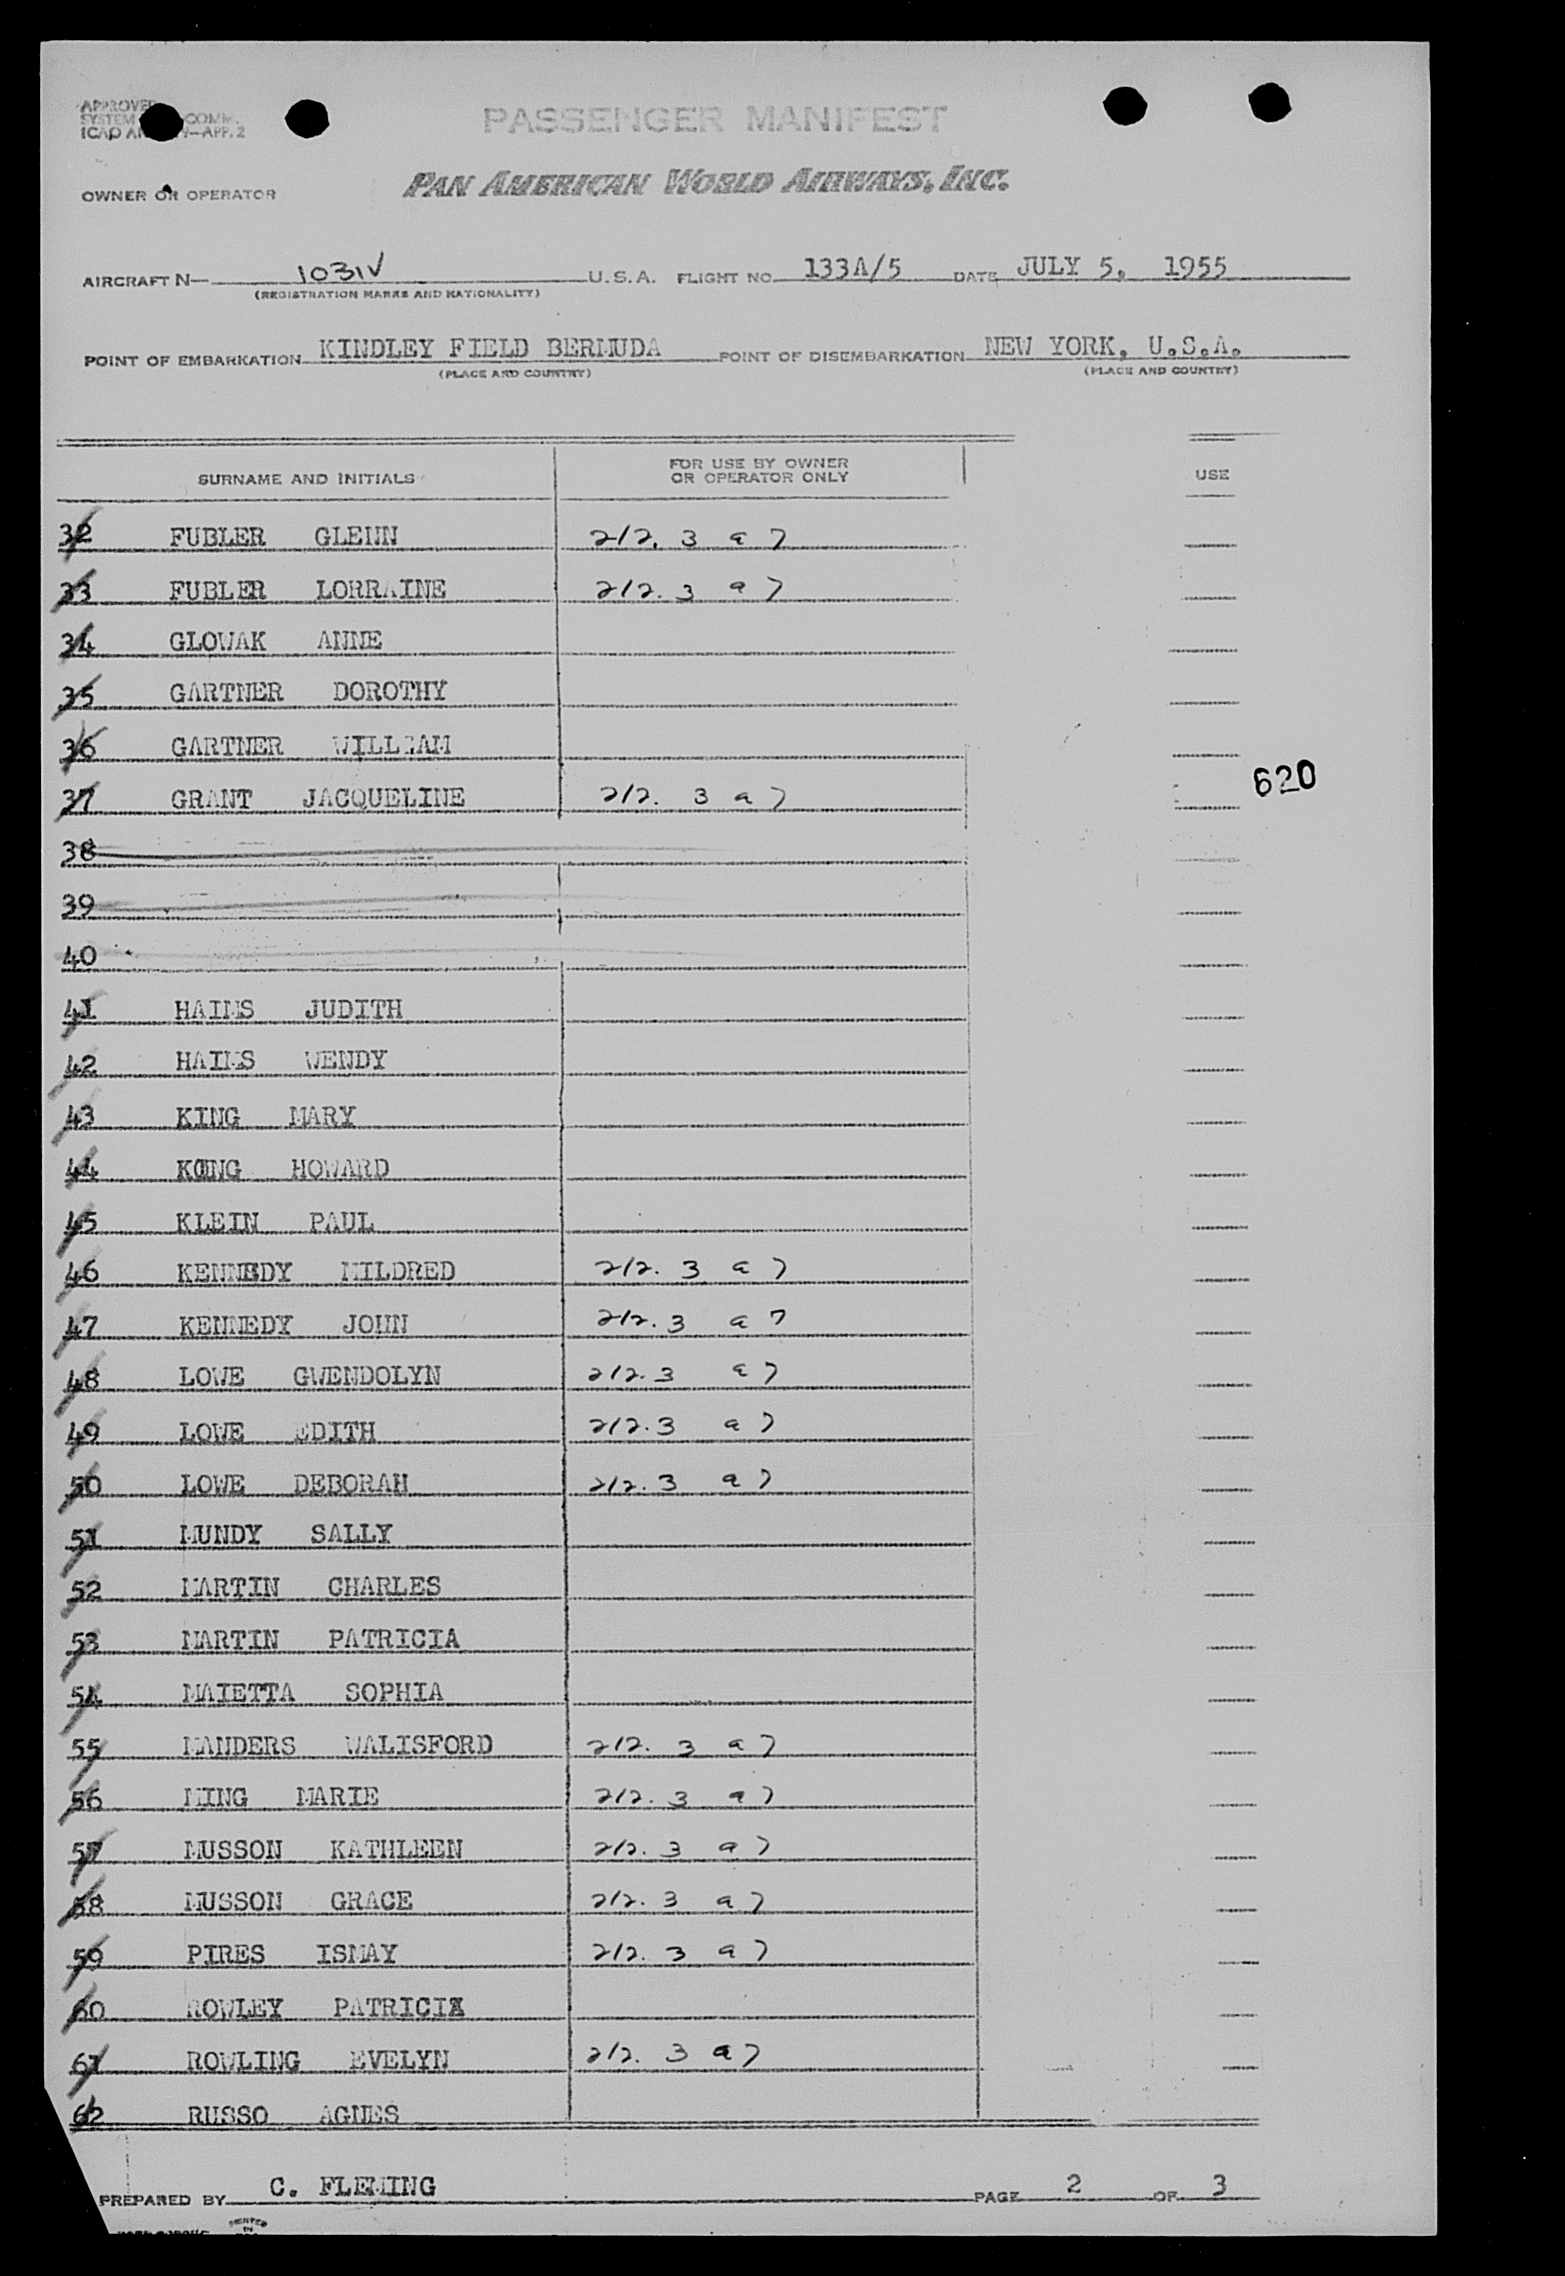 APPROVED
SYSTEM COMM.
ICAO AN V—APP. 2
PASSENGER MANIFEST
OWNER OR OPERATOR PAN AMERICAN WORLD AIRWAYS, INC.
AIRCRAFT N— 1031V U.S.A. FLIGHT NO. 133A/5 DATE JULY 5, 1955
(REGISTRATION MARKS AND NATIONALITY)
POINT OF EMBARKATION KINDLEY FIELD BERMUDA POINT OF DISEMBARKATION NEW YORK, U.S.A.
(PLACE AND COUNTRY) (PLACE AND COUNTRY)
SURNAME AND INITIALS FOR USE BY OWNER OR OPERATOR ONLY USE
32 FUBLER GLENN 212. 3 a 7
33 FUBLER LORRAINE 212. 3 a 7
34 GLOWAK ANNE
35 GARTNER DOROTHY
36 GARTNER WILLIAM
620
37 GRANT JACQUELINE 212. 3 a 7
38
39
40
41 HAIMS JUDITH
42 HAIMS WENDY
43 KING MARY
44 KING HOWARD
45 KLEIN PAUL
46 KENNEDY MILDRED 212. 3 a 7
47 KENNEDY JOHN 212. 3 a 7
48 LOWE GWENDOLYN 212. 3 a 7
49 LOWE EDITH 212. 3 a 7
50 LOWE DEBORAH 212. 3 a 7
51 MUNDY SALLY
52 MARTIN CHARLES
53 MARTIN PATRICIA
54 MAIETTA SOPHIA
55 MANDERS WALISFORD 212. 3 a 7
56 MING MARIE 212. 3 a 7
57 MUSSON KATHLEEN 212. 3 a 7
58 MUSSON GRACE 212. 3 a 7
59 PIRES ISMAY 212. 3 a 7
60 ROWLEY PATRICIA
61 ROWLING EVELYN 212. 3 a 7
62 RUSSO AGNES
PREPARED BY C. FLEMING PAGE 2 OF 3
PRINTED
IN